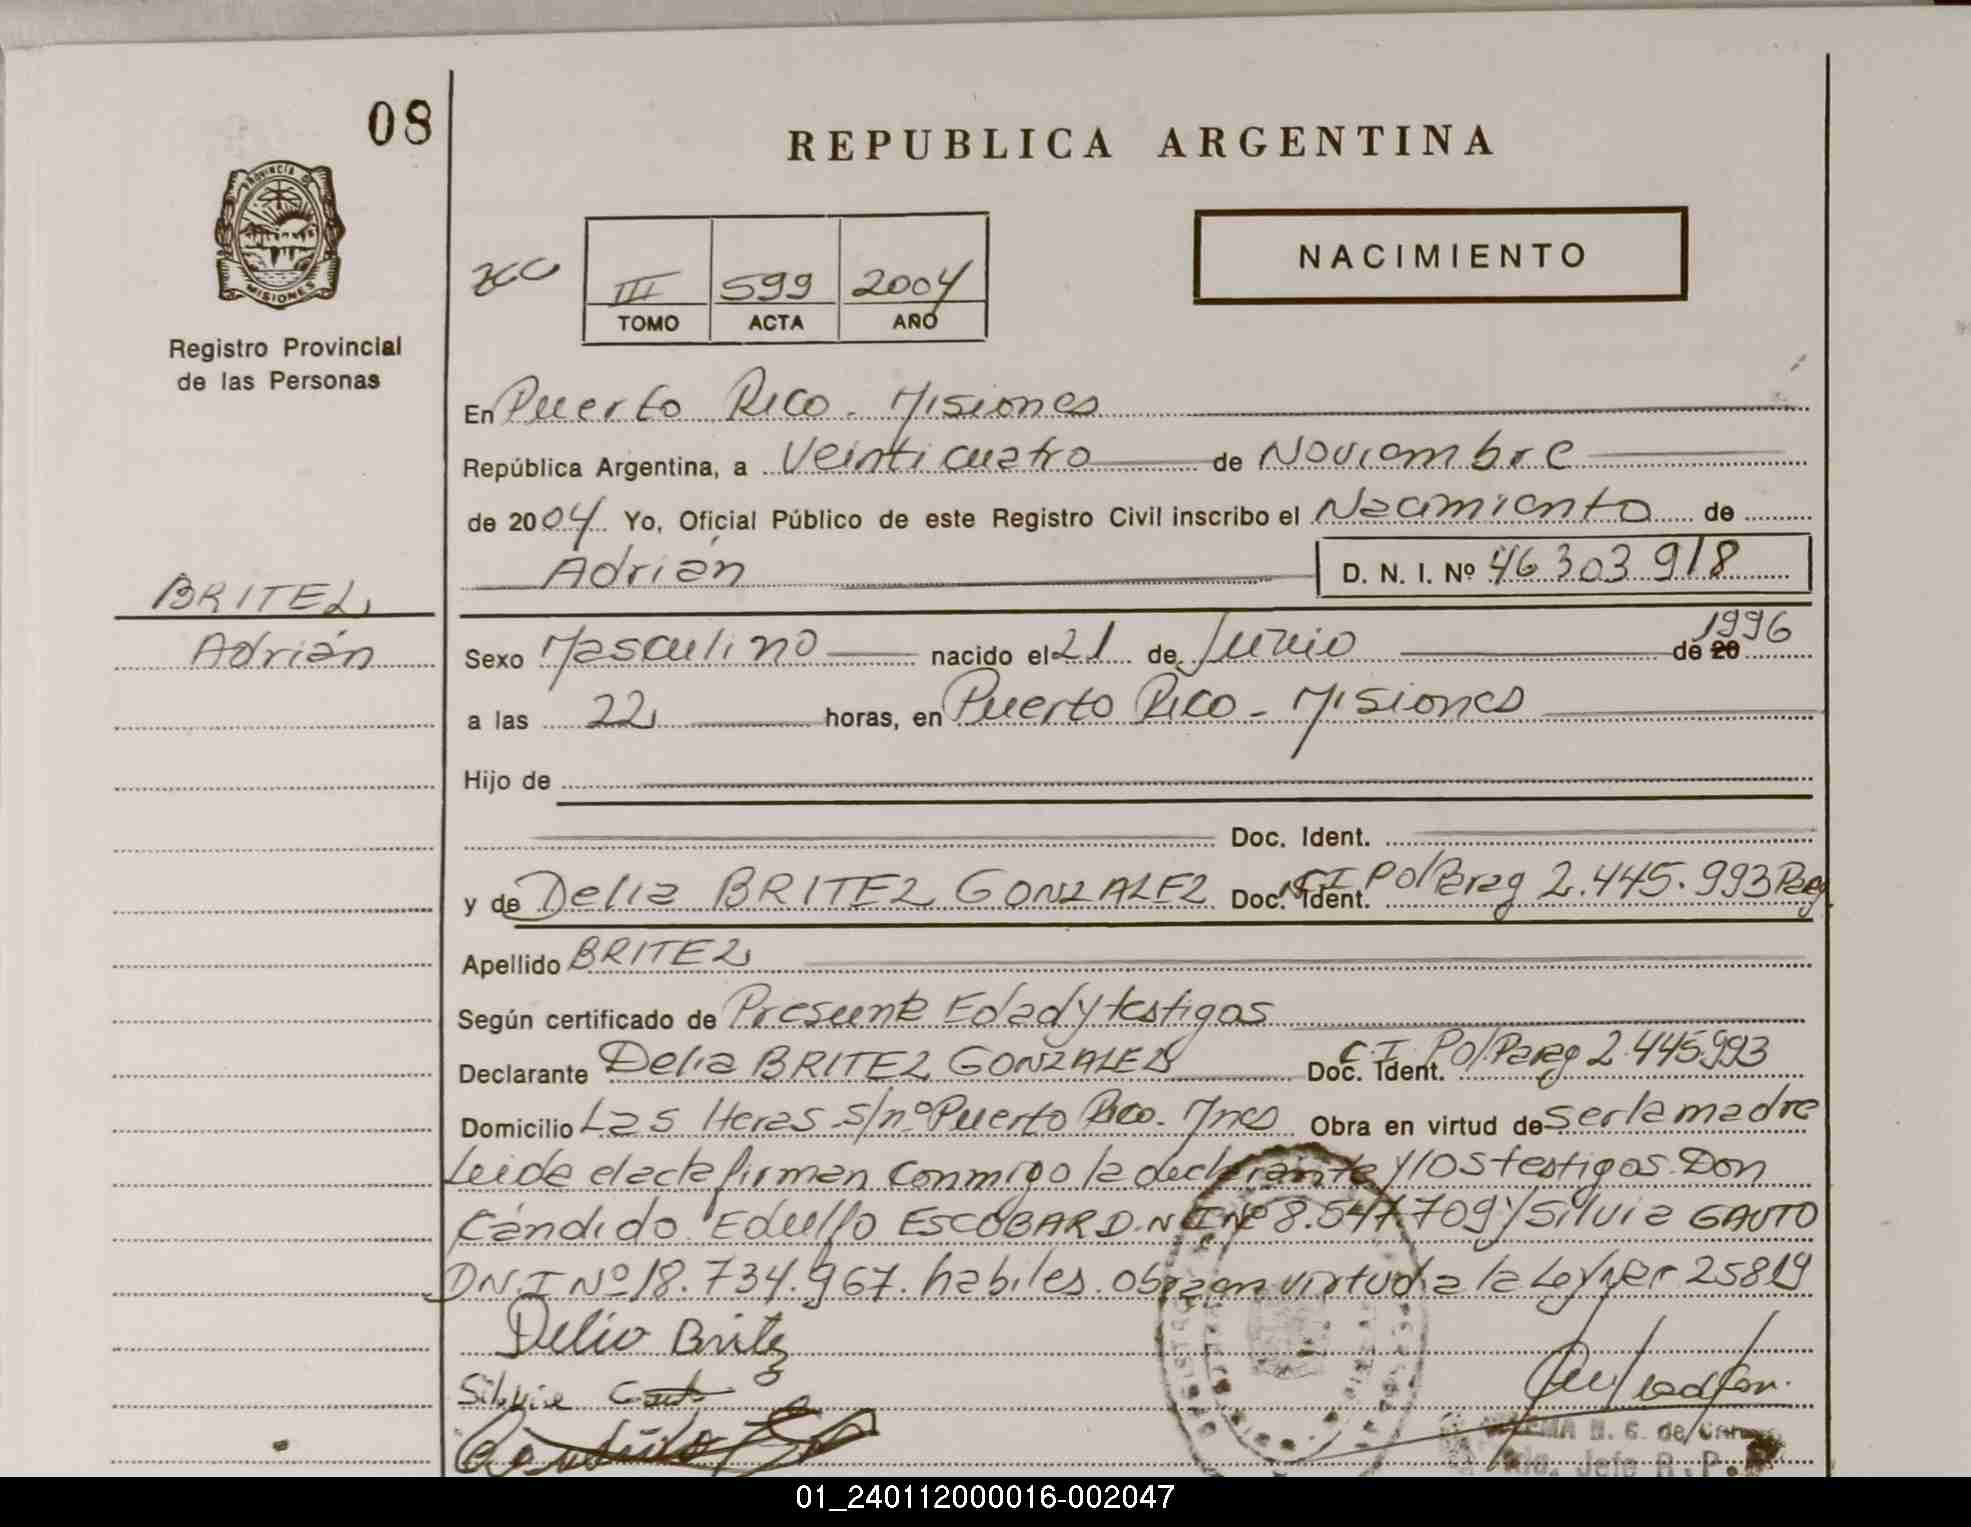 08
REPUBLICA ARGENTINA
PROVINCIA DE
MISIONES
Registro Provincial
de las Personas
III 599 2004
TOMO ACTA AÑO
NACIMIENTO
En Puerto Rico - Misiones
República Argentina, a Veinticuatro de Noviembre
de 2004 Yo, Oficial Público de este Registro Civil inscribo el Nacimiento de
Adrián D. N. I. Nº 46303918
BRITEZ
Adrián
Sexo Masculino nacido el 21 de Junio de 20 1996
a las 22 horas, en Puerto Rico - Misiones
Hijo de
Doc. Ident.
y de Delia BRITEZ GONZALEZ Doc. Ident. CI Pol Parag 2.445.993 Parag
Apellido BRITEZ
Según certificado de Presunta Edad y testigos
Declarante Delia BRITEZ GONZALEZ Doc. Ident. C.I. Pol Parag 2.445.993
Domicilio Las Heras s/nº Puerto Rico. Mnes Obra en virtud de ser la madre
Leida el acta firman conmigo la declarante y los testigos Don
Cándido Edulfo ESCOBAR D.N.I Nº 8.547.709 y Silvia GAUTO
D.N.I Nº 18.734.967. habiles. obran en virtud a la Ley Nac 25819
Delia Britez
Silvia Gauto
01_240112000016-002047